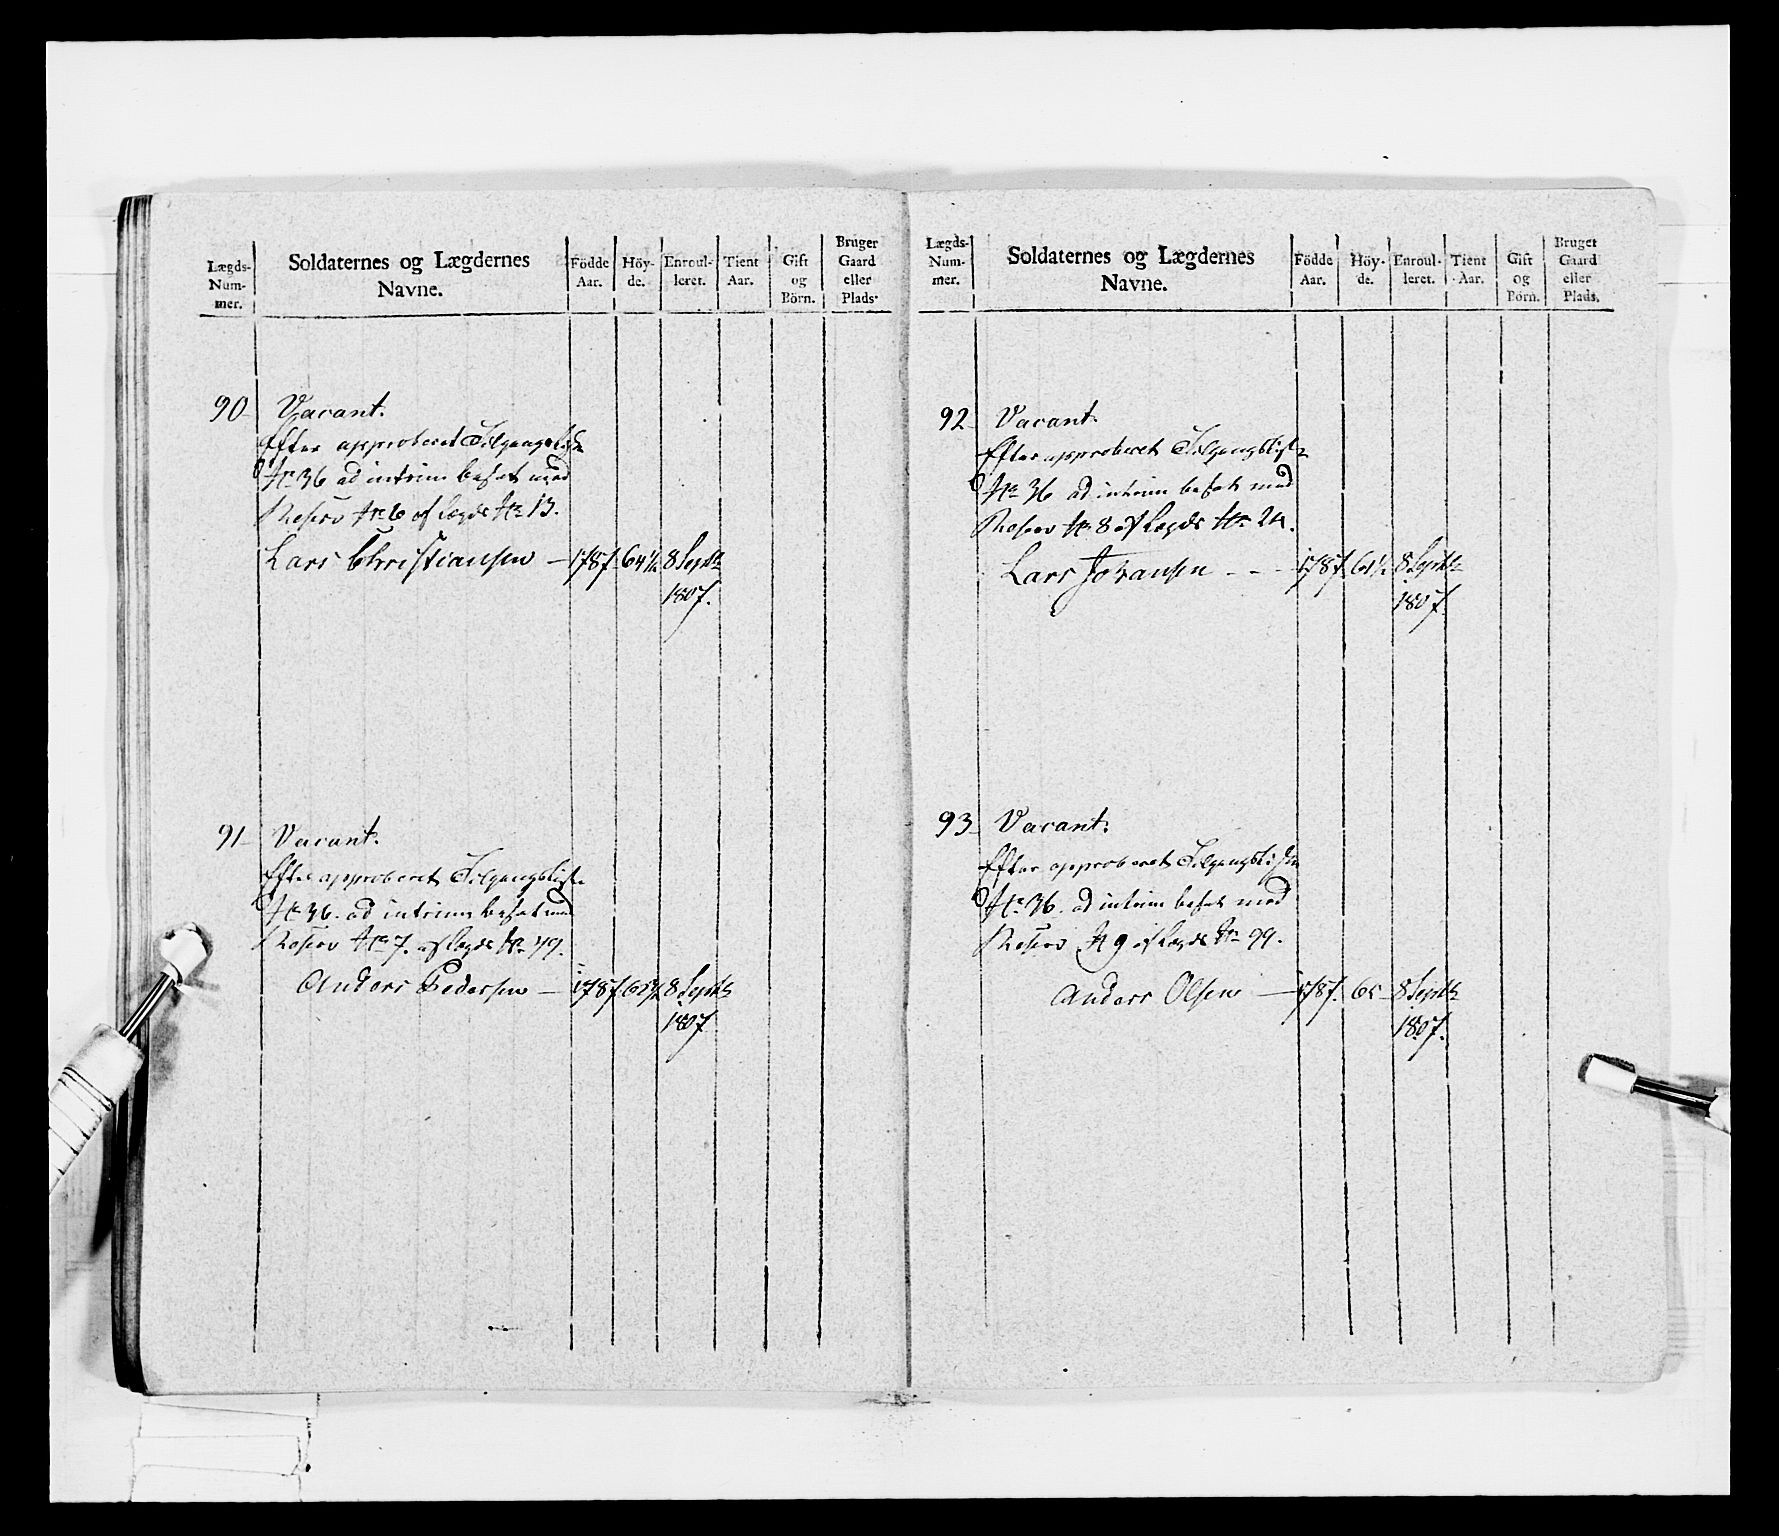 Lægds-
Num-
mer.
Soldaternes og Lægdernes
Navne.
Födde
Aar.
Höy-
de.
Enroul-
leret.
Tient
Aar.
Gift
og
Börn.
Bruger
Gaard
eller
Plads.
90 Vacant.
Efter approberet Tilgangsliste
No 36 ad intrim besat med
Reserv No 6 af Lægds No 13.
Lars Christiansen — 1787. 64½ 8 Septbr
1807.
91 Vacant.
Efter approberet Tilgangsliste
No 36. ad intrim besat med
Reserv No 7. af Lægds No 49.
Anders Pedersen — 1787. 8 Septbr
1807
Lægds-
Num-
mer.
Soldaternes og Lægdernes
Navne.
Födde
Aar.
Höy-
de.
Enroul-
leret.
Tient
Aar.
Gift
og
Börn.
Bruger
Gaard
eller
Plads.
92 Vacant.
Efter approberet Tilgangsliste
No 36 ad intrim besat med
Reserv No 8 af Lægds No 24.
Lars Johansen - - - 1787. 61½ 8 Septbr
1807.
93 Vacant.
Efter approberet Tilgangsliste
No 36. ad intrim besat med
Reserv N 9 af Lægds No 99.
Anders Olsen — 1787. 65 8 Septbr
1807.